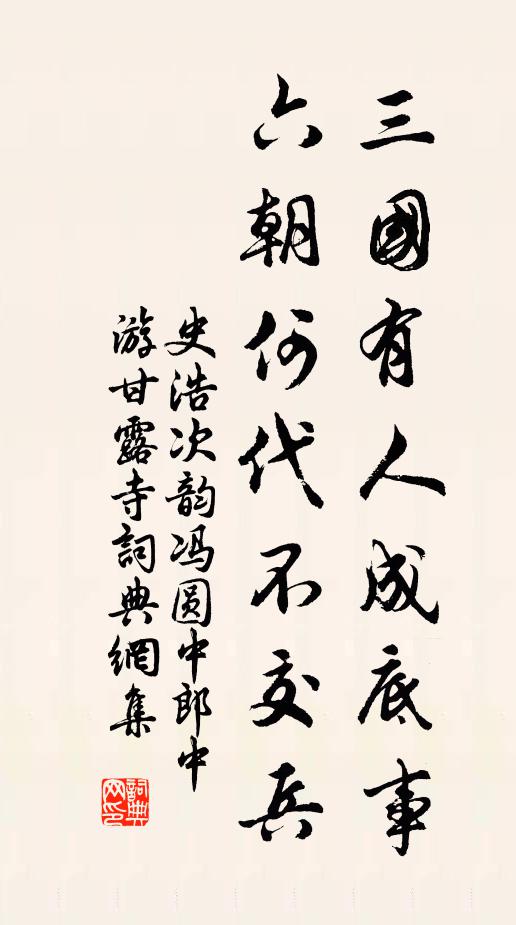 三國有人成底事
六朝何代不交兵
史浩次韵冯圆中郎中
游甘露寺詞典網集
詞典网印